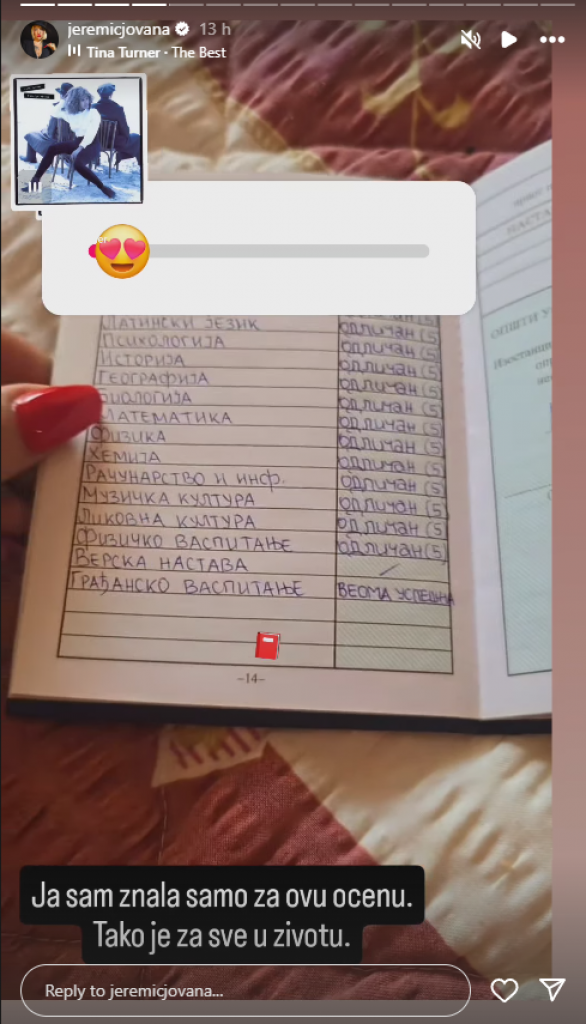 jeremicjovana 13 h
Tina Turner · The Best
ЛАТИНСКИ ЈЕЗИК ОДЛИЧАН (5
ПСИХОЛОГИЈА ОДЛИЧАН (5
ИСТОРИЈА ОДЛИЧАН (5
ГЕОГРАФИЈА ОДЛИЧАН (5
БИОЛОГИЈА ОДЛИЧАН (5
МАТЕМАТИКА ОДЛИЧАН (5
ФИЗИКА ОДЛИЧАН (5
ХЕМИЈА ОДЛИЧАН (5
РАЧУНАРСТВО И ИНФ. ОДЛИЧАН (5
МУЗИЧКА КУЛТУРА ОДЛИЧАН (5
ЛИКОВНА КУЛТУРА ОДЛИЧАН (5
ФИЗИЧКО ВАСПИТАЊЕ ОДЛИЧАН (5)
ВЕРСКА НАСТАВА /
ГРАЂАНСКО ВАСПИТАЊЕ ВЕОМА УСПЕШНА
-14-
НАСТА
ОПШТИ У
Изостани
Ja sam znala samo za ovu ocenu.
Tako je za sve u zivotu.
Reply to jeremicjovana...